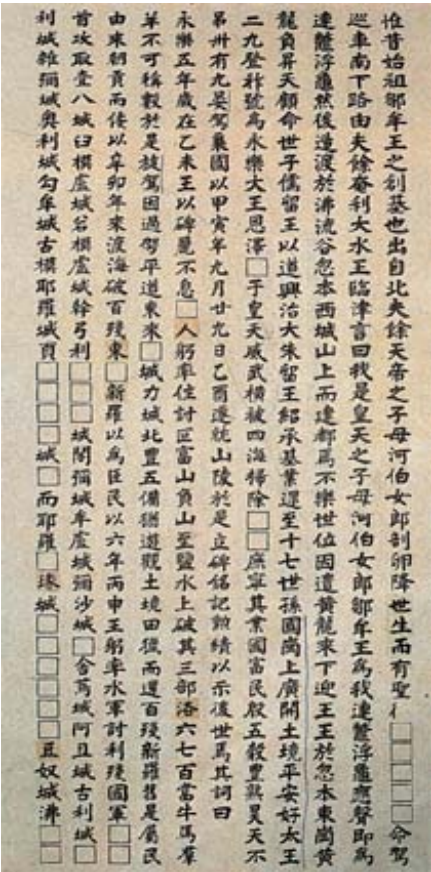 惟昔始祖鄒牟王之創基也出自北夫餘天帝之子母河伯女郎剖卵降世生而有聖亻□□□□□命駕
巡車南下路由夫餘奄利大水王臨津言曰我是皇天之子母河伯女郎鄒牟王為我連鼈浮龜應聲即為
連鼈浮龜然後造渡於沸流谷忽本西城山上而建都焉不樂世位因遣黃龍來下迎王王於忽本東崗黃
龍負昇天顧命世子儒留王以道興治大朱留王紹承基業還至十七世孫國崗上廣開土境平安好太王
二九登祚號為永樂大王恩澤□于皇天威武橫被四海掃除□□庶寧其業國富民殷五穀豐熟昊天不
弔卅有九晏駕棄國以甲寅年九月廿九日乙酉遷就山陵於是立碑銘記勳績以示後世焉其詞曰
永樂五年歲在乙未王以碑麗不息□人躬率住討叵富山負山至鹽水上破其三部洛六七百當牛馬羣
羊不可稱數於是旋駕因過駕平道東來□城力城北豐五備猶遊觀土境田獵而還百殘新羅舊是屬民
由來朝貢而倭以辛卯年來渡海破百殘東□新羅以為臣民以六年丙申王躬率水軍討利殘國軍□□
首攻取壹八城臼模盧城若模盧城幹弓利□□城閣彌城牟盧城彌沙城□舍蔦城阿旦城古利城□
利城雜彌城奧利城勾牟城古模耶羅城頁□□□□城□而耶羅□瑑城□□□□□□□豆奴城沸□